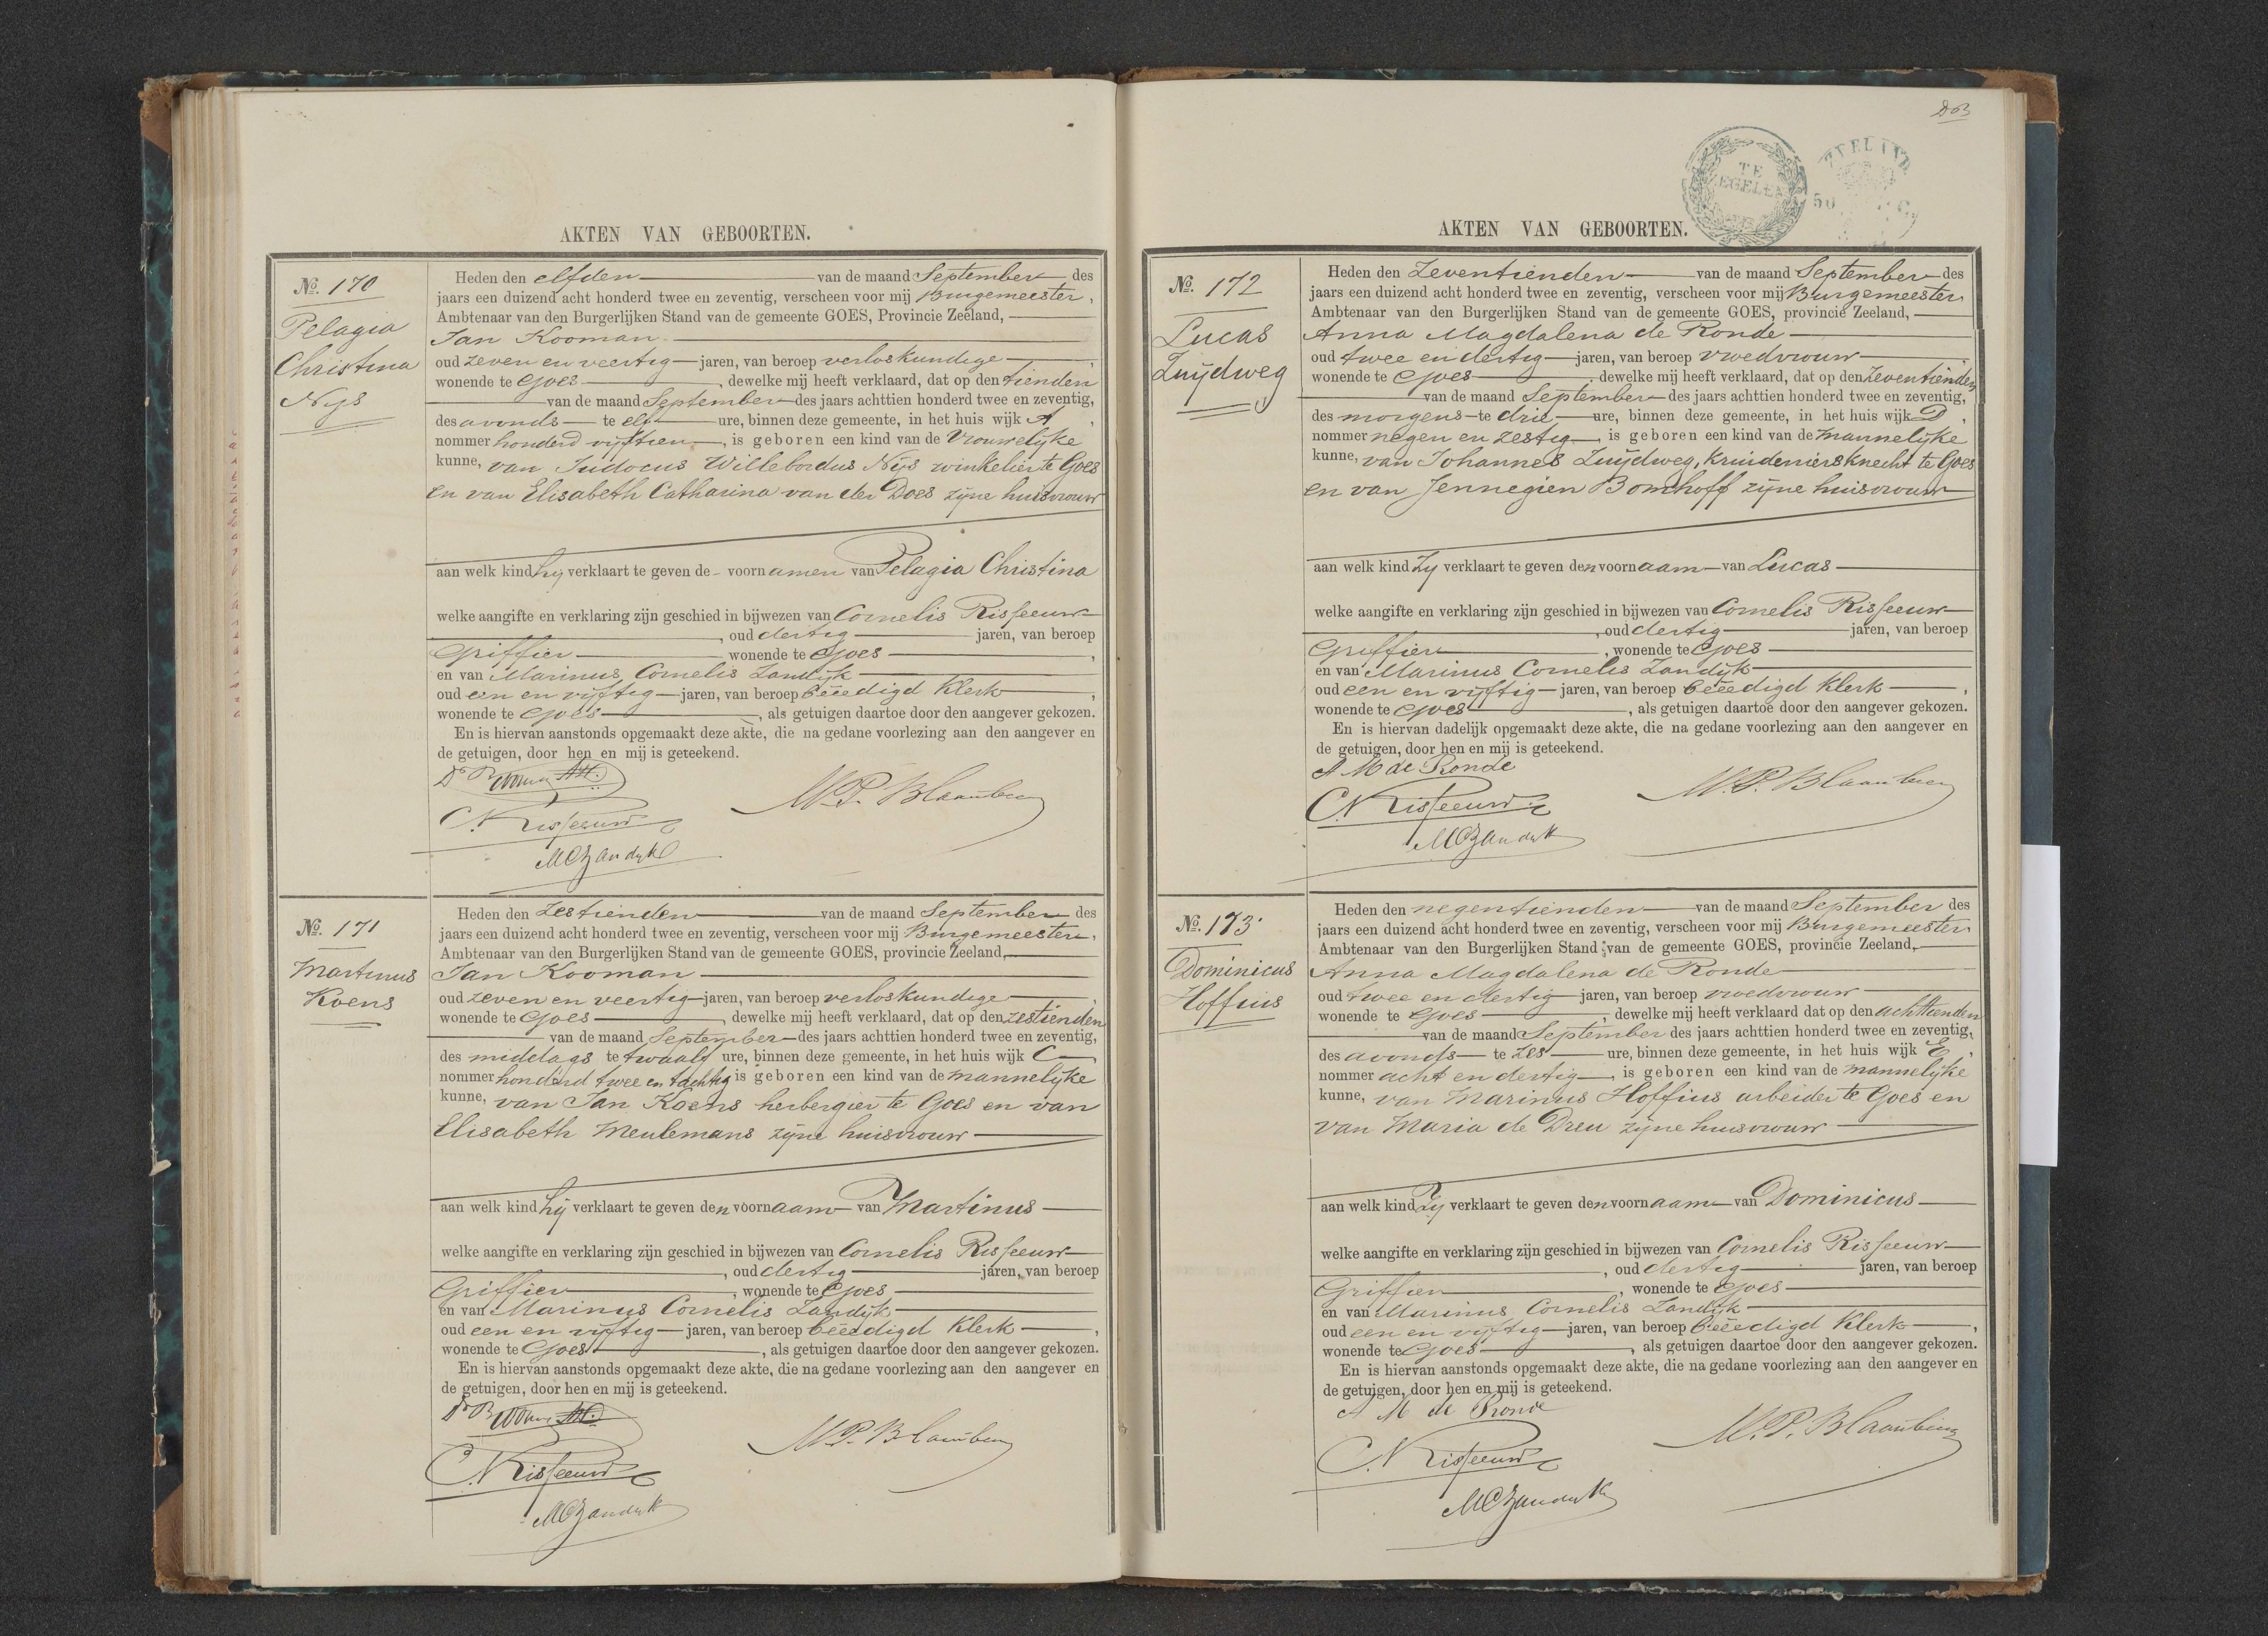 AKTEN VAN GEBOORTEN.
No. 170
Pelagia
Christina
Nijs
Heden den elfden van de maand September des
jaars een duizend acht honderd twee en zeventig, verscheen voor mij Burgemeester,
Ambtenaar van den Burgerlijken Stand van de gemeente GOES, Provincie Zeeland,
Jan Kooman
oud zeven en veertig jaren, van beroep verloskundige,
wonende te Goes, dewelke mij heeft verklaard, dat op den tienden
van de maand September des jaars achttien honderd twee en zeventig,
des avonds te elf ure, binnen deze gemeente, in het huis wijk A,
nommer honderd vijftien, is geboren een kind van de Vrouwelijke
kunne, van Judocus Willebordus Nijs winkelier te Goes
en van Elisabeth Catharina van der Does zijne huisvrouw
aan welk kind hij verklaart te geven de voornamen van Pelagia Christina
welke aangifte en verklaring zijn geschied in bijwezen van Cornelis Risseeuw
, oud dertig jaren, van beroep
Griffier wonende te Goes,
en van Marinus Cornelis Zandijk
oud een en vijftig jaren, van beroep beëedigd Klerk,
wonende te Goes, als getuigen daartoe door den aangever gekozen.
En is hiervan aanstonds opgemaakt deze akte, die na gedane voorlezing aan den aangever en
de getuigen, door hen en mij is geteekend.
M.P. Blaaubeen
C. Risseeuw
MCZandijk
No. 171
Martinus
Koens
Heden den zestienden van de maand September des
jaars een duizend acht honderd twee en zeventig, verscheen voor mij Burgemeester,
Ambtenaar van den Burgerlijken Stand van de gemeente GOES, provincie Zeeland,
Jan Kooman
oud zeven en veertig jaren, van beroep verloskundige,
wonende te Goes, dewelke mij heeft verklaard, dat op den zestienden
van de maand September des jaars achttien honderd twee en zeventig,
des middags te twaalf ure, binnen deze gemeente, in het huis wijk C,
nommer honderd twee en tachtig is geboren een kind van de mannelijke
kunne, van Jan Koens herbergier te Goes en van
Elisabeth Meulemans zijne huisvrouw
aan welk kind hij verklaart te geven den voornaam van Martinus
welke aangifte en verklaring zijn geschied in bijwezen van Cornelis Risseeuw
, oud dertig jaren, van beroep
Griffier, wonende te Goes
en van Marinus Cornelis Zandijk
oud een en vijftig jaren, van beroep beëedigd Klerk,
wonende te Goes, als getuigen daartoe door den aangever gekozen.
En is hiervan aanstonds opgemaakt deze akte, die na gedane voorlezing aan den aangever en
de getuigen, door hen en mij is geteekend.
M.P. Blaaubeen
C. Risseeuw
MCZandijk
TE
ZEGELEN
ZEELAND
50
AKTEN VAN GEBOORTEN.
No. 172
Lucas
Zuijdweg
Heden den Zeventienden van de maand September des
jaars een duizend acht honderd twee en zeventig, verscheen voor mij Burgemeester
Ambtenaar van den Burgerlijken Stand van de gemeente GOES, provincie Zeeland,
Anna Magdalena de Ronde
oud twee en dertig jaren, van beroep vroedvrouw,
wonende te Goes, dewelke mij heeft verklaard, dat op den Zeventienden
van de maand September des jaars achttien honderd twee en zeventig,
des morgens te drie ure, binnen deze gemeente, in het huis wijk D,
nommer negen en zestig, is geboren een kind van de mannelijke
kunne, van Johannes Zuijdweg, Kruideniersknecht te Goes
en van Jennegien Bomhoff zijne huisvrouw
aan welk kind Zij verklaart te geven den voornaam van Lucas
welke aangifte en verklaring zijn geschied in bijwezen van Cornelis Risseeuw
, oud dertig jaren, van beroep
Griffier, wonende te Goes
en van Marinus Cornelis Zandijk
oud een en vijftig jaren, van beroep beëedigd Klerk,
wonende te Goes, als getuigen daartoe door den aangever gekozen.
En is hiervan dadelijk opgemaakt deze akte, die na gedane voorlezing aan den aangever en
de getuigen, door hen en mij is geteekend.
A M de Ronde
M.P. Blaaubeen
C. Risseeuw
MCZandijk
No. 173
Dominicus
Hoffius
Heden den negentienden van de maand September des
jaars een duizend acht honderd twee en zeventig, verscheen voor mij Burgemeester
Ambtenaar van den Burgerlijken Stand van de gemeente GOES, provincie Zeeland,
Anna Magdalena de Ronde
oud twee en dertig jaren, van beroep vroedvrouw
wonende te Goes, dewelke mij heeft verklaard dat op den achttienden
van de maand September des jaars achttien honderd twee en zeventig,
des avonds te zes ure, binnen deze gemeente, in het huis wijk E,
nommer acht en dertig, is geboren een kind van de mannelijke
kunne, van Marinus Hoffius arbeider te Goes en
van Maria de Dreu zijne huisvrouw
aan welk kind Zij verklaart te geven den voornaam van Dominicus
welke aangifte en verklaring zijn geschied in bijwezen van Cornelis Risseeuw
, oud dertig jaren, van beroep
Griffier, wonende te Goes
en van Marinus Cornelis Zandijk
oud een en vijftig jaren, van beroep beëedigd Klerk,
wonende te Goes, als getuigen daartoe door den aangever gekozen.
En is hiervan aanstonds opgemaakt deze akte, die na gedane voorlezing aan den aangever en
de getuigen, door hen en mij is geteekend.
A M de Ronde
M.P. Blaaubeen
C. Risseeuw
MCZandijk